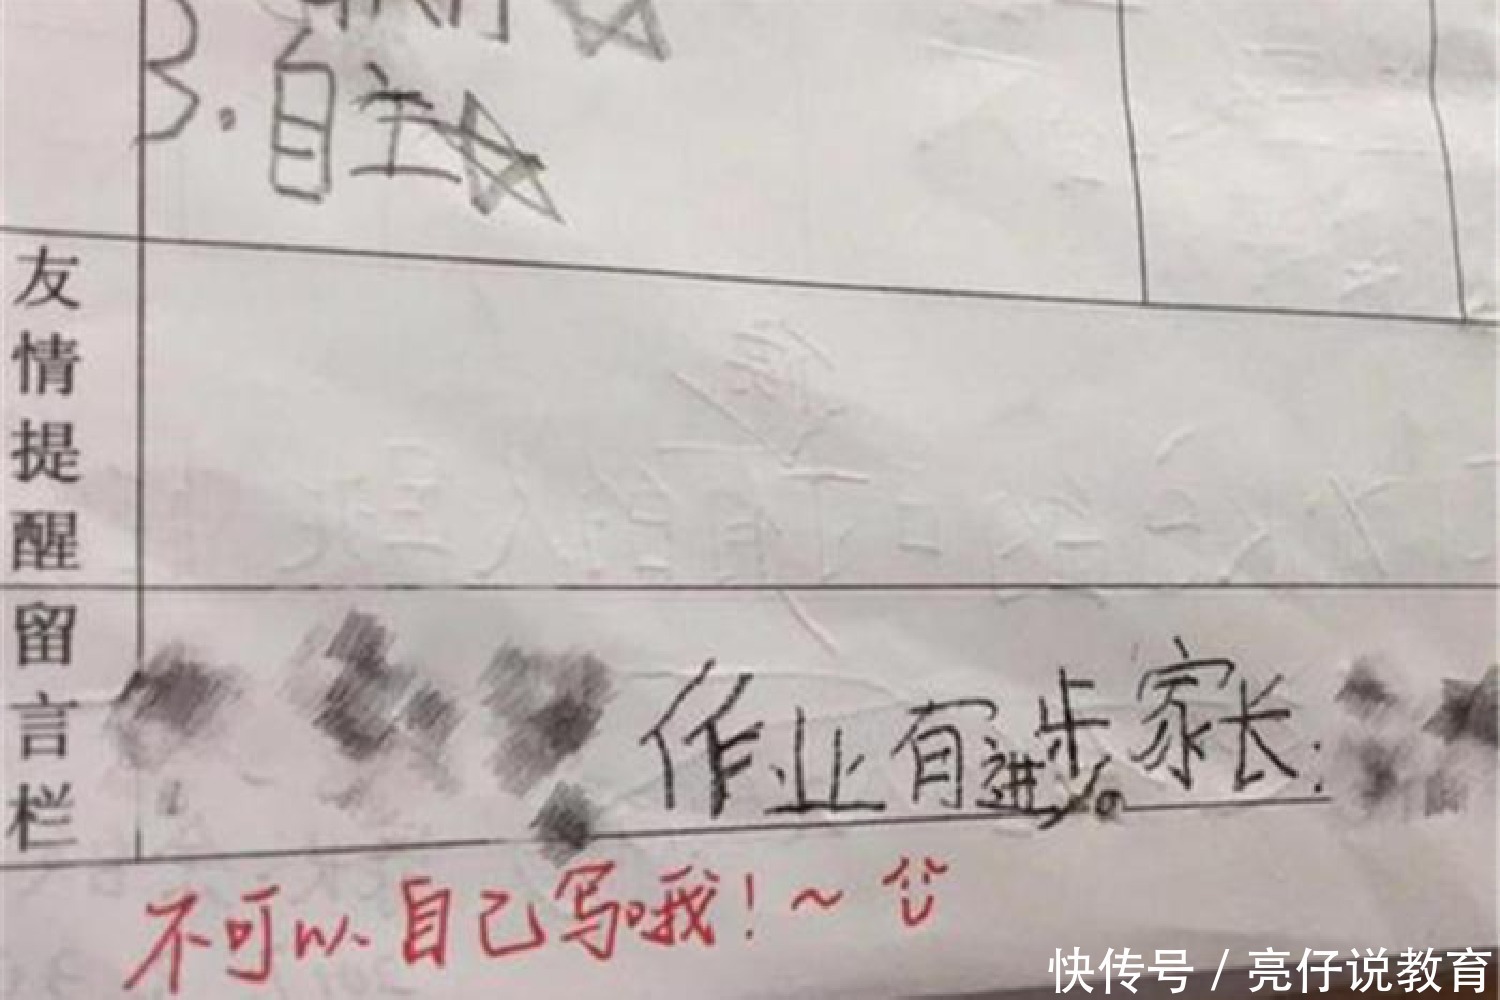 3.自主
友情提醒
留言栏
作业有进步。家长:
不可以自己写哦!~
快传号/亮仔说教育